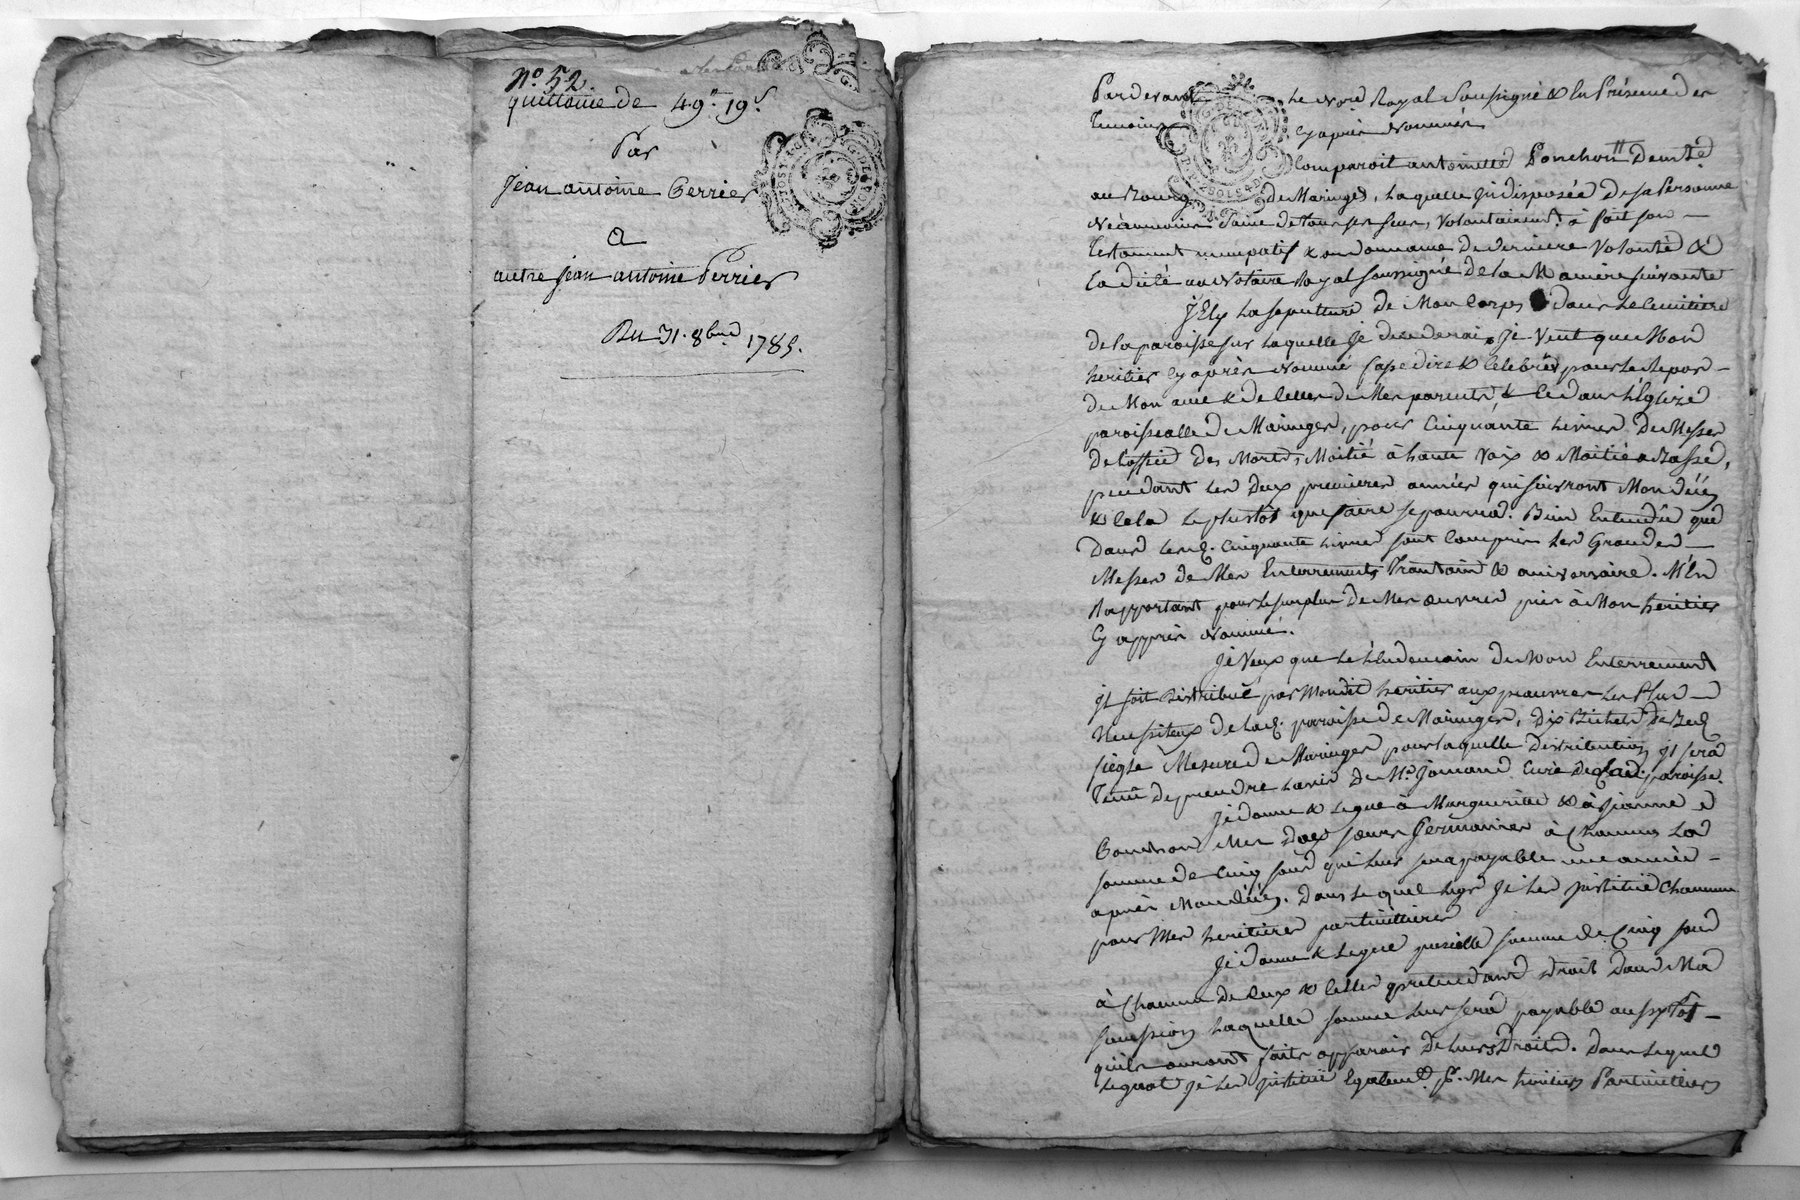 N.o 52.
quittance de 49.# 19.s
Par
Jean antoine Perrier
a
autre jean antoine Perrier
Du 31. 8bre 1785.
Pardevant Le Nore Royal Soussigné & En Présence des
temoins Cyaprès Nommés
Comparoit antoinette Ponchon
au Bourg de Maringes, Laquelle Jndisposée de sa Personne
Néanmoins Saine de tous ses sens, Volontairemt. à fait son
testament nuncupatif & ordonnance de derniere Volonté &
La dicté au Notaire Royal soussigné de la Maniere suivante
J'Ely La sepulture de Mon Corps dans Le Cimitiere
de la paroisse sur Laquelle Je decederai, Je Veut que Mon
heritier Cy après Nommé fasse dire & Celebrer pour Le Repos
de Mon ame & de Celles de Mes parents, & Ce dans L'Eglize
paroissialle de Maringes, pour Cinquante Livres de Messes
de L'office des Morts, Moitié à haute Voix & Moitié a Basse,
pendant Les deux premieres années qui suivront Mon décés
& Cela Le plustôt que faire se pourra. Bien Entendû que
dans Lesd. Cinquante Livres sont Comprises Les Grandes
Messes de Mes Enterrements, Trantain & anivorsaire. M'En
Rapportant pour Le surplus de Mes œuvres pies à Mon heritier
Cy apprès Nommé.
Je Veux que Le Lendemain de Mon Enterrement
Jl soit Distribué par Mondit heritier aux pauvres Les Plus
Necessiteux de Lad. paroisse de Maringes, dix Bichets de Bled
siegle Mesure de Maringes pour Laquelle Distribution Jl sera
tenû de prendre L'avis de Mr. Jomand Curé de Lad. paroisse.
Je donne & Legue à Marguerite & à Jeanne
Ponchon Mes deux sœurs Germaines à Chacune La
somme de Cinq sous qui Leur sera payable une année
après Mon décés. Dans Le quel Legs Je Les Jnstitue Chacune
pour Mes heritieres particullieres
Je donne & Legue pareille somme de Cinq sous
à Chacun de Ceux & Celles prétendant droit dans Ma
sucession Laquelle somme Leur sera payable aussytôt
qu'ils auront faits apparoir de Leurs Droits. Dans Lequel
Legat Je Les Jnstitue Egalemt. pr. Mes heritiers Particulliers